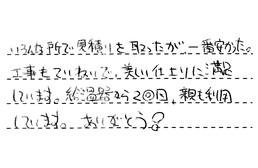 いろんな所で見積りを取ったが、一番安かった。
工事もていねいで、美しい仕上りに満足
しています。給湯器から2回目、親も利用
しています。ありがとう!